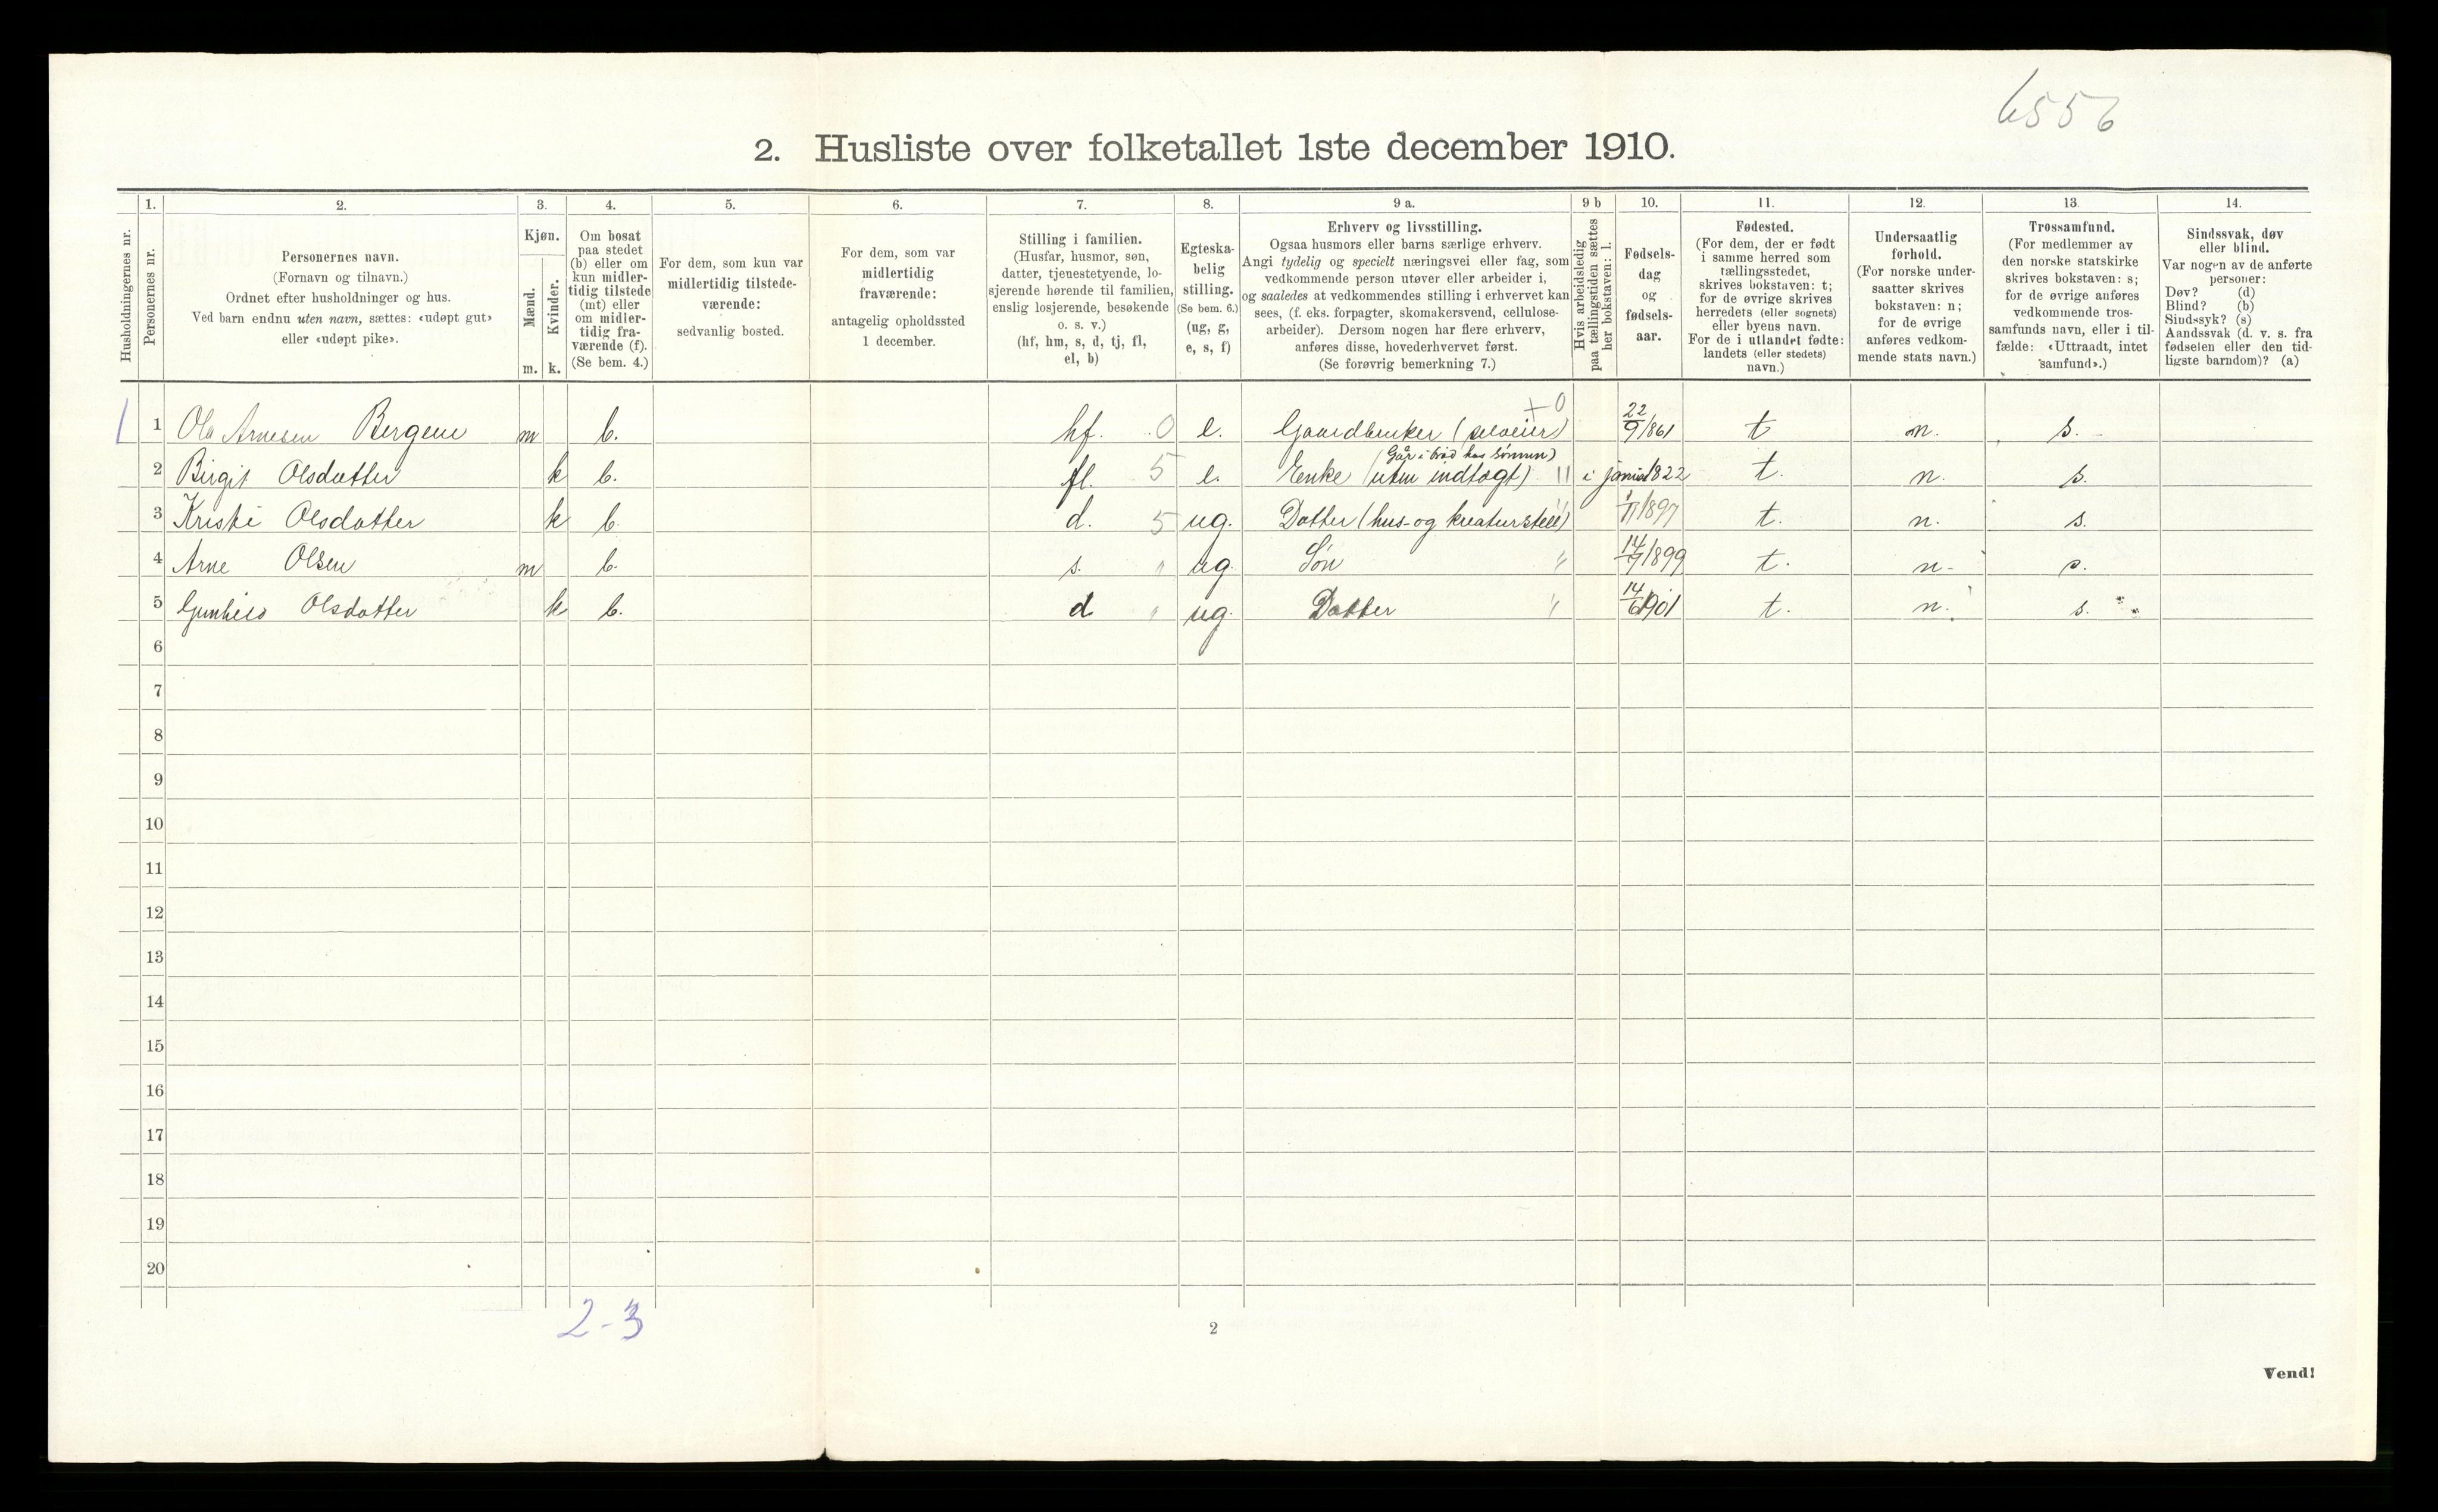 6556
2. Husliste over folketallet 1ste december 1910.
Husholdningernes nr.
1.
Personernes nr.
2.
Personernes navn.
(Fornavn og tilnavn.)
Ordnet efter husholdninger og hus.
Ved barn endnu uten navn, sættes: «udøpt gut»
eller «udøpt pike».
3.
Kjøn.
Mænd.
Kvinder.
m. k.
4.
Om bosat
paa stedet
(b) eller om
kun midler-
tidig tilstede
(mt) eller
om midler-
tidig fra-
værende (f).
(Se bem. 4.)
5.
For dem, som kun var
midlertidig tilstede-
værende:
sedvanlig bosted.
6.
For dem, som var
midlertidig
fraværende:
antagelig opholdssted
1 december.
7.
Stilling i familien.
(Husfar, husmor, søn,
datter, tjenestetyende, lo-
sjerende hørende til familien,
enslig losjerende, besøkende
o. s. v.)
(hf, hm, s, d, tj, fl,
el, b)
8.
Egteska-
belig
stilling.
(Se bem. 6.)
(ug, g,
e, s, f)
9 a.
Erhverv og livsstilling.
Ogsaa husmors eller barns særlige erhverv.
Angi tydelig og specielt næringsvei eller fag, som
vedkommende person utøver eller arbeider i,
og saaledes at vedkommendes stilling i erhvervet kan
sees, (f. eks. forpagter, skomakersvend, cellulose-
arbeider). Dersom nogen har flere erhverv,
anføres disse, hovederhvervet først.
(Se forøvrig bemerkning 7.)
9 b
Hvis arbeidsledig
paa tællingstiden sættes
her bokstaven: l.
10.
Fødsels-
dag
og
fødsels-
aar.
11.
Fødested.
(For dem, der er født
i samme herred som
tællingsstedet,
skrives bokstaven: t;
for de øvrige skrives
herredets (eller sognets)
eller byens navn.
For de i utlandet fødte:
landets (eller stedets)
navn.)
12.
Undersaatlig
forhold.
(For norske under-
saatter skrives
bokstaven: n;
for de øvrige
anføres vedkom-
mende stats navn.)
13.
Trossamfund.
(For medlemmer av
den norske statskirke
skrives bokstaven: s;
for de øvrige anføres
vedkommende tros-
samfunds navn, eller i til-
fælde: «Uttraadt, intet
samfund».)
14.
Sindssvak, døv
eller blind.
Var nogen av de anførte
personer:
Døv? (d)
Blind? (b)
Sindssyk? (s)
Aandssvak (d. v. s. fra
fødselen eller den tid-
ligste barndom)? (a)
1 1 Ola Arnesen Bergene m b. hf. 0 e. Gaardbruker (selveier) +0 22/9/861 t n. s.
2 Birgit Olsdatter k b. fl. 5 e. Enke (uten indtægt) (Går i brød hos sønnen) " i juni 1822 t. n. s.
3 Kristi Olsdatter k b. d. 5 ug. Datter (hus- og kreaturstell) " 1/11/1897 t. n. s.
4 Arne Olsen m b. s. " ug. Søn " 14/9/1899 t. n. s.
5 Gunhild Olsdatter k b. d " ug. Datter " 14/6/1901 t. n. s.
6
7
8
9
10
11
12
13
14
15
16
17
18
19
20
2-3
2
Vend!